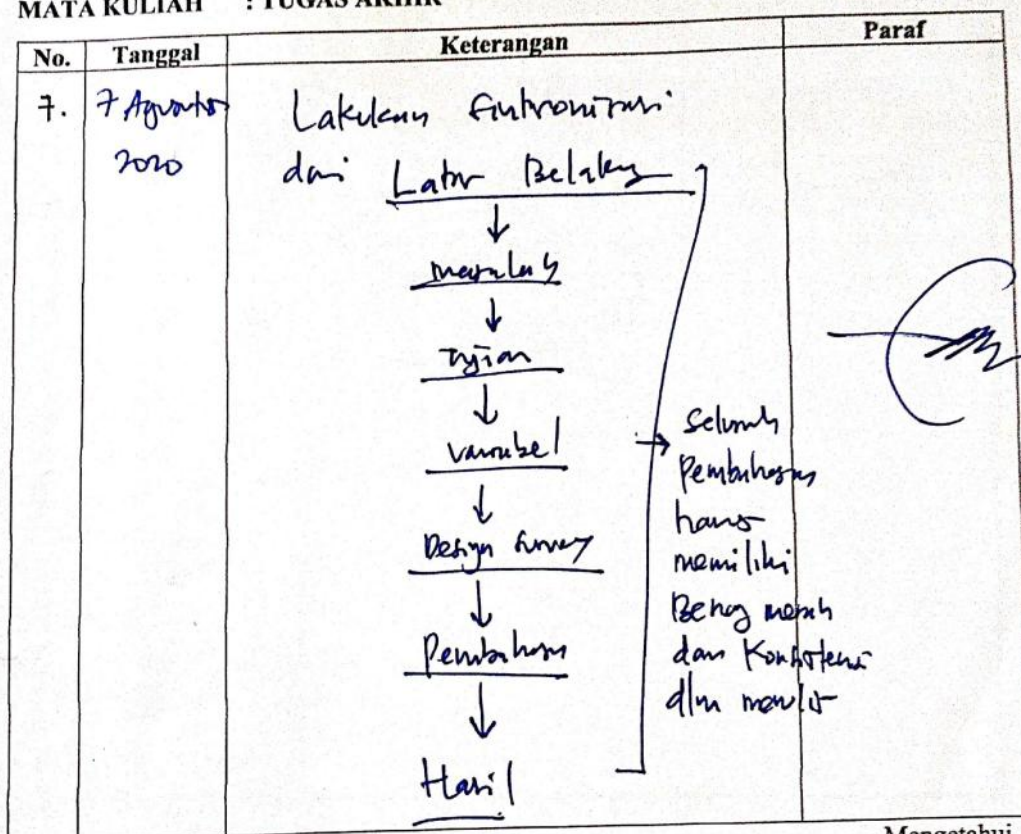 MATA KULIAH : TUGAS AKHIR
No. Tanggal Keterangan Paraf
7. 7 Agustus 2020
Lakukan Sinkronisasi
dari Latar Belakang
↓
masalah
↓
tujuan
↓
variabel
↓
Design Survey
↓
Pembahasan
↓
Hasil
→ Seluruh
Pembahasan
harus
memiliki
Benang merah
dan Konsistensi
dlm menulis
Mengetahui